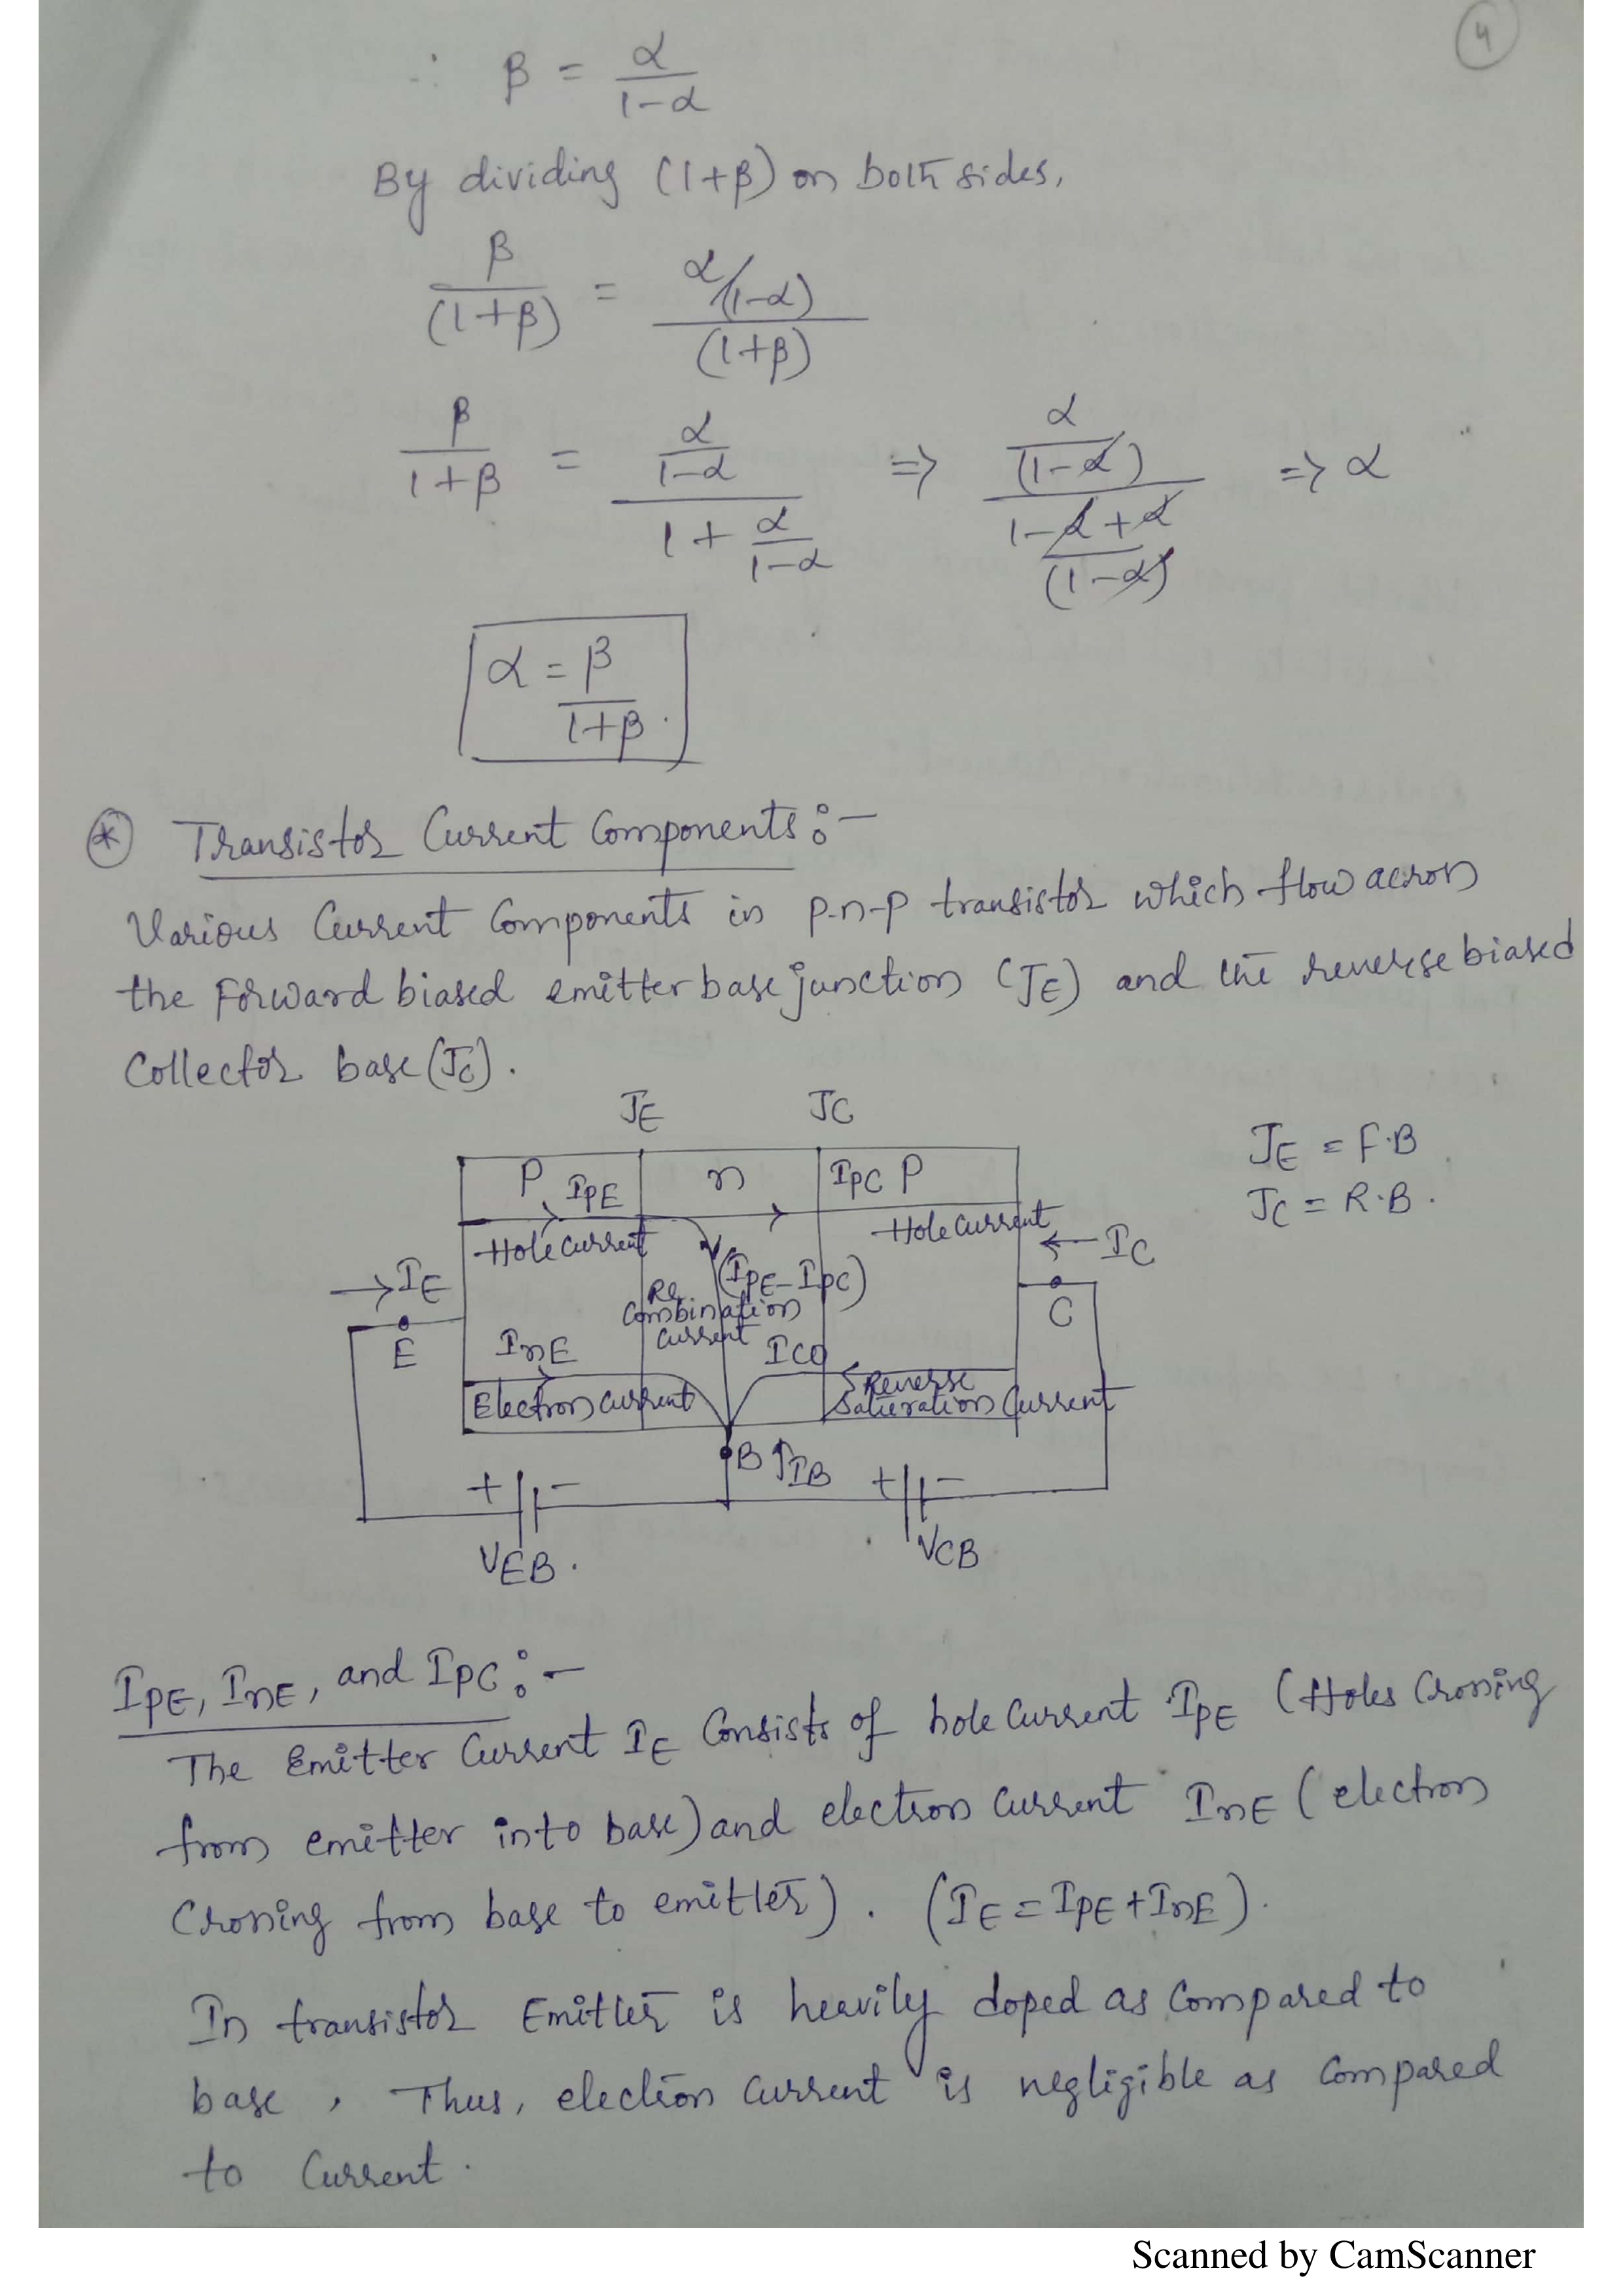 4
∴ β = α / 1-α
By dividing (1+β) on both sides,
β / (1+β) = α/(1-α) / (1+β)
β / 1+β = α / 1-α / 1 + α / 1-α => α / (1-α) / 1-α+α / (1-α) => α
α = β / 1+β .
* Transistor Current Components :-
Various Current Components in p-n-p transistor which flow across
the Forward biased emitter base junction (JE) and the reverse biased
Collector base (JC).
JE JC
JE = F.B
JC = R.B.
P IPE n IPC P
Hole Current Hole Current
← IC
→ IE (IPE-IPC)
Re
Combination
Current
C
E
InE ICO
Electron Current Reverse
Saturation Current
B ↑IB
+ - + -
VEB . VCB
IPE, InE, and IPC :-
The Emitter Current IE Consists of hole Current IPE (Holes Crossing
from emitter into base) and electron Current InE (electron
Crossing from base to emitter) . (IE = IPE + InE).
In transistor Emitter is heavily doped as Compared to
base , Thus, electron Current is negligible as Compared
to Current.
Scanned by CamScanner